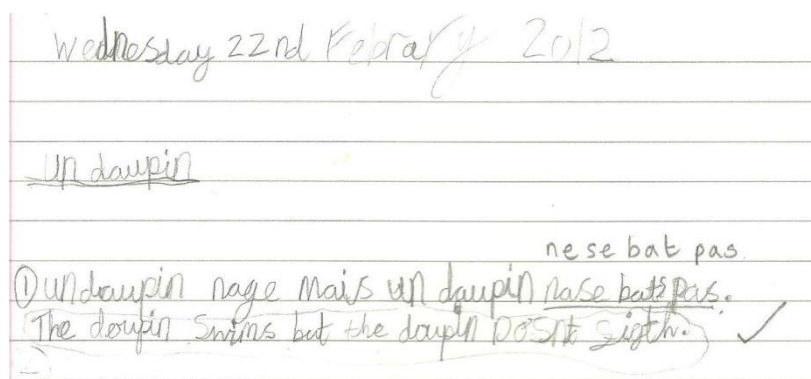 Wednesday 22nd Febrary 2012
un daupin
ne se bat pas.
① un daupin nage mais un daupin nase bats pas.
The doupin swims but the doupin DOSNt sigth. ✓